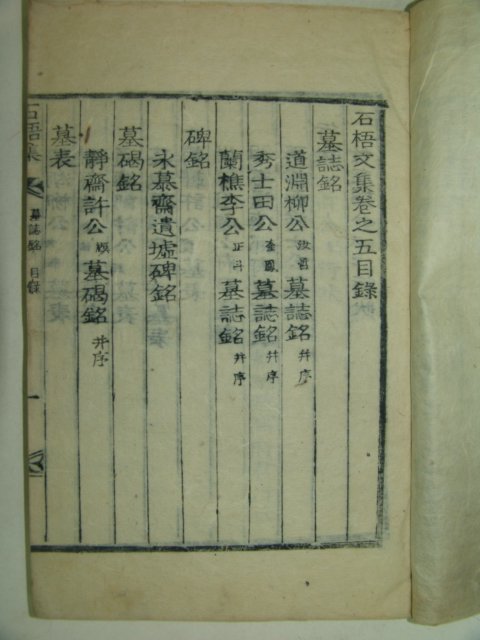 石梧文集卷之五目錄
墓誌銘
道淵柳公汝昌墓誌銘幷序
秀士田公奎鳳墓誌銘幷序
蘭樵李公正斗墓誌銘幷序
碑銘
永慕齋遺墟碑銘
墓碣銘
靜齋許公墓碣銘幷序
墓表
石梧集
墓誌銘 目錄
一